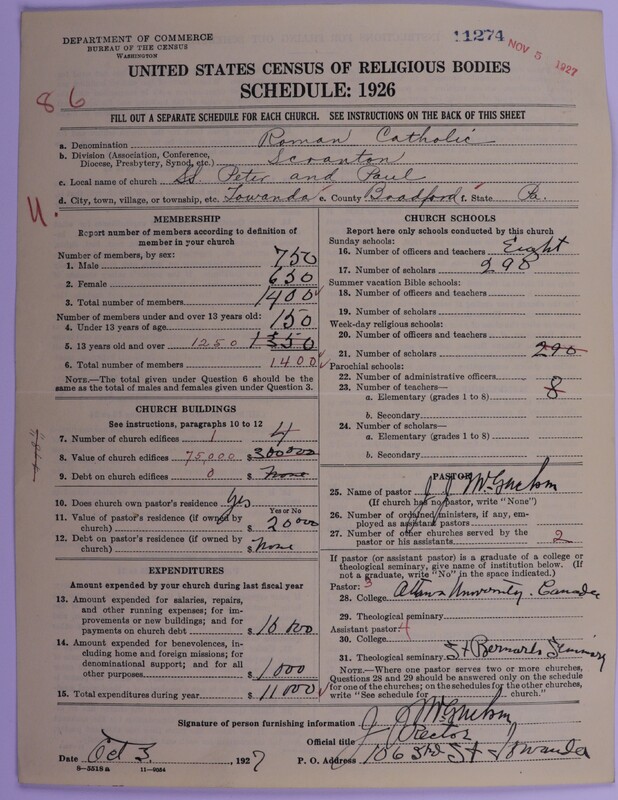 DEPARTMENT OF COMMERCE
BUREAU OF THE CENSUS
WASHINGTON
11274
NOV 5 1927
UNITED STATES CENSUS OF RELIGIOUS BODIES
SCHEDULE: 1926
86
FILL OUT A SEPARATE SCHEDULE FOR EACH CHURCH. SEE INSTRUCTIONS ON THE BACK OF THIS SHEET
a. Denomination Roman Catholic
b. Division (Association, Conference, Diocese, Presbytery, Synod, etc.) Scranton
c. Local name of church SS. Peter and Paul
d. City, town, village, or township, etc. Towanda e. County Bradford f. State Pa.
U.
MEMBERSHIP
Report number of members according to definition of
member in your church
Number of members, by sex:
1. Male 750
2. Female 650
3. Total number of members 1400
Number of members under and over 13 years old:
4. Under 13 years of age 150
5. 13 years old and over 1250 1350
6. Total number of members 1400
NOTE.—The total given under Question 6 should be
same as the total of males and females given under Question 3.
CHURCH BUILDINGS
See instructions, paragraphs 10 to 12
7. Number of church edifices 1 4
8. Value of church edifices 75,000 $ 300000
9. Debt on church edifices 0 $ None
10. Does church own pastor's residence? Yes
Yes or No
11. Value of pastor's residence (if owned by
church) $ 20000
12. Debt on pastor's residence (if owned by
church) $ None
EXPENDITURES
Amount expended by your church during last fiscal year
13. Amount expended for salaries, repairs,
and other running expenses; for im-
provements or new buildings; and for
payments on church debt $ 10 000
14. Amount expended for benevolences, in-
cluding home and foreign missions; for
denominational support; and for all
other purposes $ 1000
15. Total expenditures during year $ 11000
CHURCH SCHOOLS
Report here only schools conducted by this church
Sunday schools:
16. Number of officers and teachers Eight
17. Number of scholars 290
Summer vacation Bible schools:
18. Number of officers and teachers
19. Number of scholars
Week-day religious schools:
20. Number of officers and teachers
21. Number of scholars 290
Parochial schools:
22. Number of administrative officers
23. Number of teachers—
a. Elementary (grades 1 to 8) 8
b. Secondary
24. Number of scholars—
a. Elementary (grades 1 to 8)
b. Secondary
PASTOR
25. Name of pastor J. J.
(If church has no pastor, write "None")
26. Number of ordained ministers, if any, em-
ployed as assistant pastors
27. Number of other churches served by the
pastor or his assistants 2
If pastor (or assistant pastor) is a graduate of a college or
theological seminary, give name of institution below. (If
not a graduate, write "No" in the space indicated.)
Pastor: 3
28. College Ottawa University. Canada
29. Theological seminary
Assistant pastor: 4
30. College
31. Theological seminary St Bernards Seminary
NOTE.—Where one pastor serves two or more churches,
Questions 28 and 29 should be answered only on the schedule
for one of the churches; on the schedules for the other churches,
write "See schedule for church."
Signature of person furnishing information J. J.
Official title Rector
Date Oct 3, 1927 P. O. Address 106 3rd St Towanda
8-5518a 11-9054